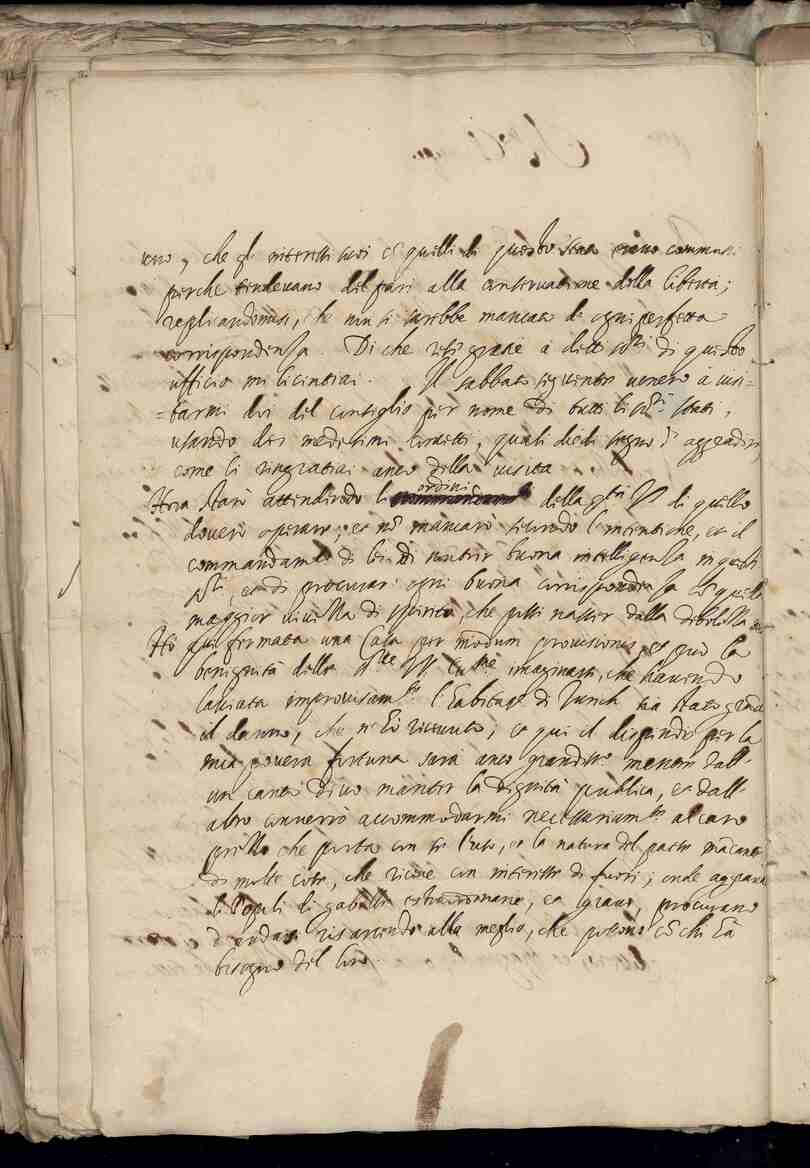 uno, che gl' interessi suoi cõ quelli di questo stato erano communi
perche tendevano del pari alla conservatione della libertà;
replicandomisi, che non si sarebbe mancato di ogni perfetta
corrispondenza. Di che resi gratie à detti ss.ri di questo
ufficio mi licentiai. Il sabbato seguente venero à visi=
=tarmi doi del consiglio per nome di tutti li ss.ri stati,
usando li medesimi concetti, quali diedi segno d' aggradir,
come li ringratiai anco della visita
Hora starò attendendo li ordini della Ser.tà V. di quello
doverò operare; et nõ mancarò secondo l'intentione, et il
commandam.to di lei di nutrir buona intelligenza in questi
ss.ri, et di procurar ogni buona corrispondenza cõ quella
maggior vivezza di spirito, che possi nasser dalla debolezza
Hò qui fermata una Casa per modum provisionis, et può la
benignità delle VV. imaginarsi, che havendo
lasciata improvisam.te l'habitat.e di Zurich sia stato grãde
il danno, che n' hò ricevuto, et qui il dispendio per la
mia povera fortuna sarà anco grandiss.o mentre dall'
un canto devo mantener la dignità publica, et dall'
altro converrò accommodarmi necessariam.te al caro
prezzo che porta con se l'uso, et la natura del paese mãcante
di molte cose, che riceve con interesse di fuori; onde aggravati
li Popoli di gabelle estraordinarie, et gravi, procurano
d'andar risarcendosi alla meglio, che possono cõ chi hà
bisogno del loro.